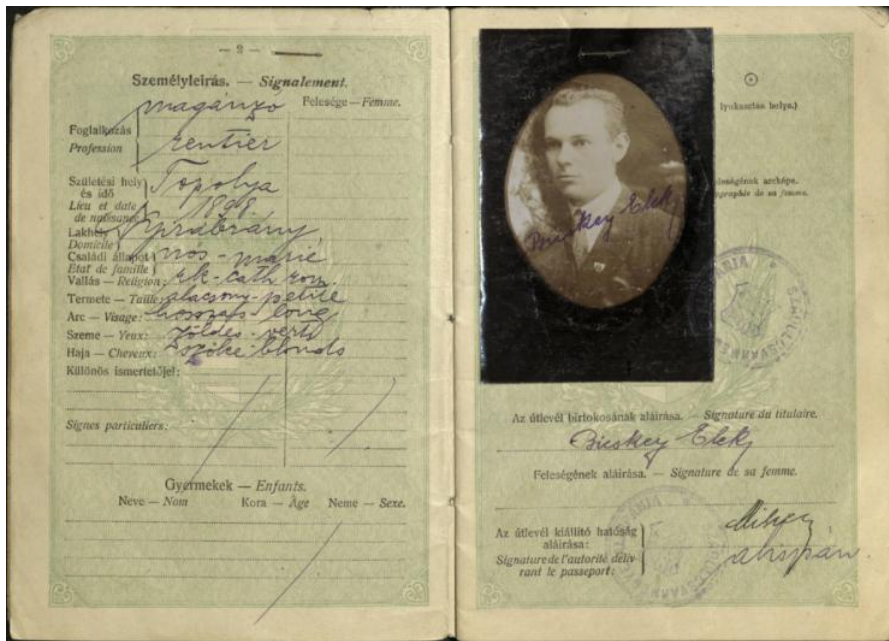 — 2 —
Személyleirás. — Signalement.
Felesége — Femme.
magánzó
Foglalkozás
Profession
rentier
Születési hely
és idő
Lieu et date
de naissance
Topolya
1898
Lakhely
Domicile
Családi állapot
État de famille
nős - marié
Vallás — Religion: rk - cath rom.
Termete — Taille: alacsony - petite
Arc — Visage: hosszas - long
Szeme — Yeux: zöldes - verts
Haja — Cheveux: szőke blonds
Különös ismertetőjel:
Signes particuliers:
Gyermekek — Enfants.
Neve — Nom Kora — Âge Neme — Sexe.
lyukasztás helye.)
feleségének arcképe.
Bicskey Elek
Az útlevél birtokosának aláirása. — Signature du titulaire.
Bicskey Elek
Feleségének aláirása. — Signature de sa femme.
Az útlevél kiállító hatóság
aláirása:
Signature de l'autorité déliv-
rant le passeport:
alispán